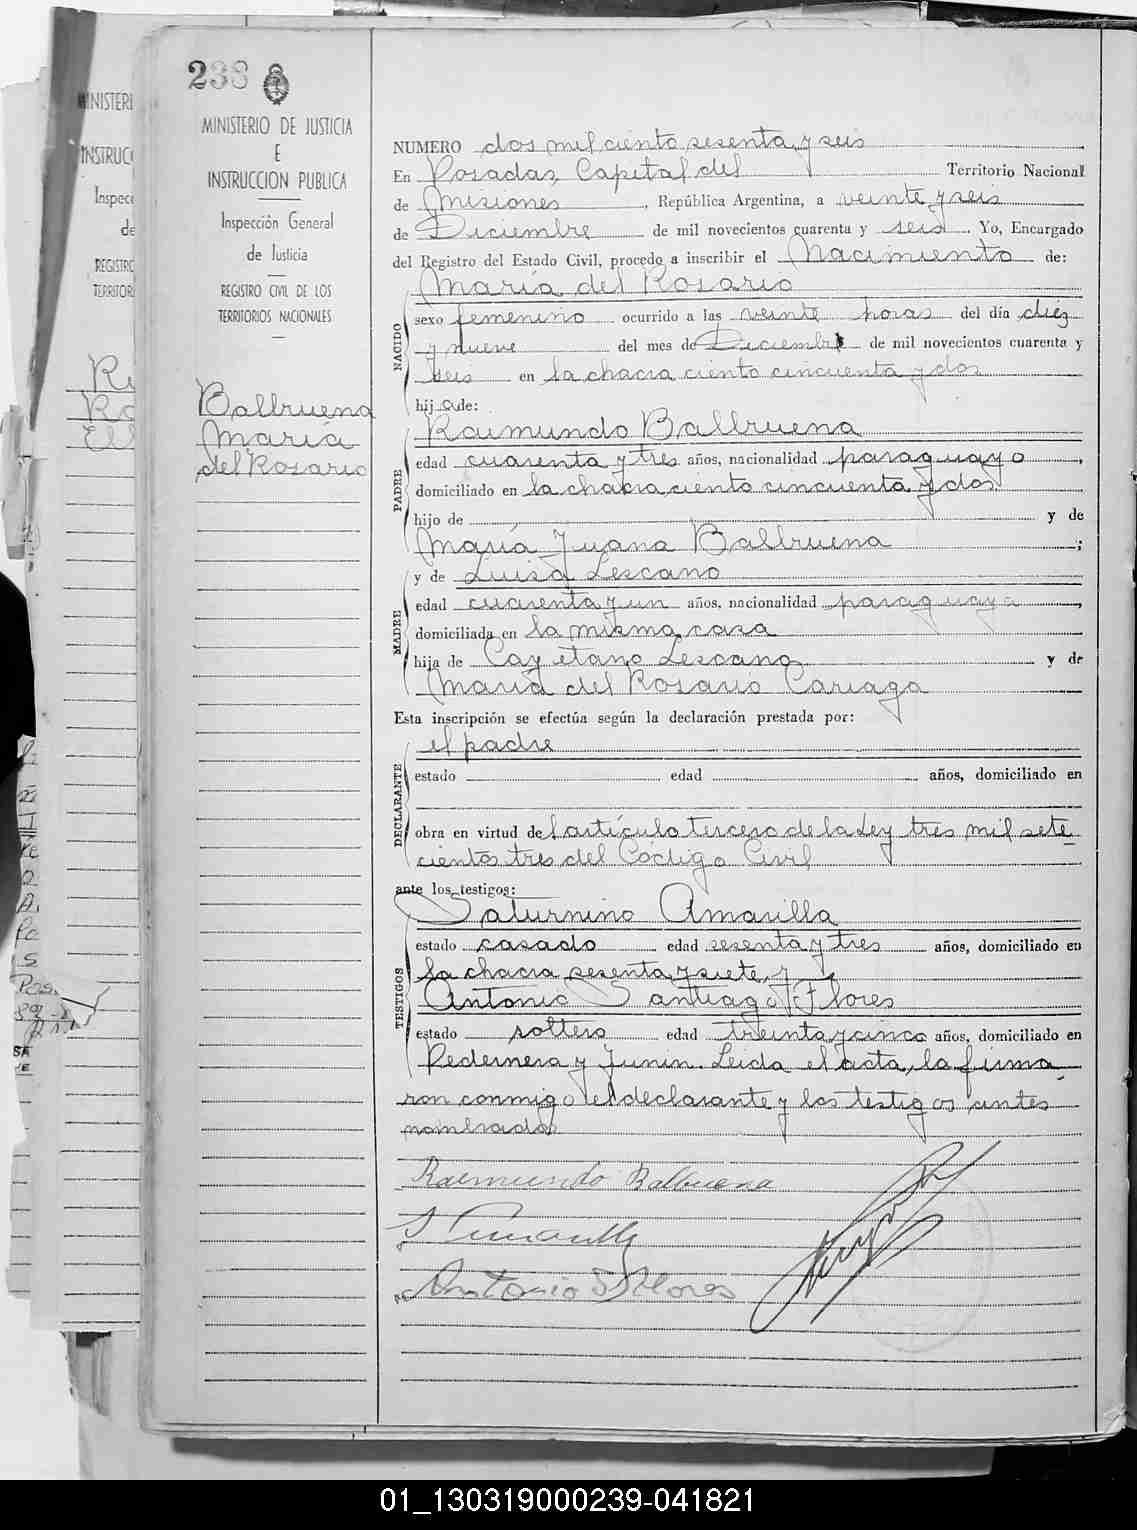 238
MINISTERIO DE JUSTICIA
E
INSTRUCCION PUBLICA
Inspección General
de Justicia
REGISTRO CIVIL DE LOS
TERRITORIOS NACIONALES
Ballruena
María
del Rosario
NUMERO dos mil ciento sesenta y seis
En Posadas, Capital del Territorio Nacional
de Misiones, República Argentina, a veinte y seis
de Diciembre de mil novecientos cuarenta y seis. Yo, Encargado
del Registro del Estado Civil, procedo a inscribir el Nacimiento de:
María del Rosario
NACIDO
sexo femenino ocurrido a las veinte horas del día diez
y nueve del mes de Diciembre de mil novecientos cuarenta y
seis en la chacra ciento cincuenta y dos
hija de:
PADRE
Raimundo Ballruena
edad cuarenta y tres años, nacionalidad paraguayo,
domiciliado en la chacra ciento cincuenta y dos
hijo de y de
María Juana Ballruena;
MADRE
y de Luisa Lescano
edad cuarenta y un años, nacionalidad paraguaya,
domiciliada en la misma casa
hija de Cayetano Lescano y de
María del Rosario Cariaga
Esta inscripción se efectúa según la declaración prestada por:
DECLARANTE
el padre
estado edad años, domiciliado en
obra en virtud del artículo tercero de la Ley tres mil sete
cientos tres del Código Civil
ante los testigos:
TESTIGOS
Saturnino Amarilla
estado casado edad sesenta y tres años, domiciliado en
la chacra sesenta y siete, y
Antonio Santiago Flores
estado soltero edad treinta y cinco años, domiciliado en
Pedernera y Junin. Leida el acta, la firma
ron conmigo el declarante y los testigos antes
nombrados
Raimundo Balbuena
S Amarilla
Antonio S Flores
01_130319000239-041821